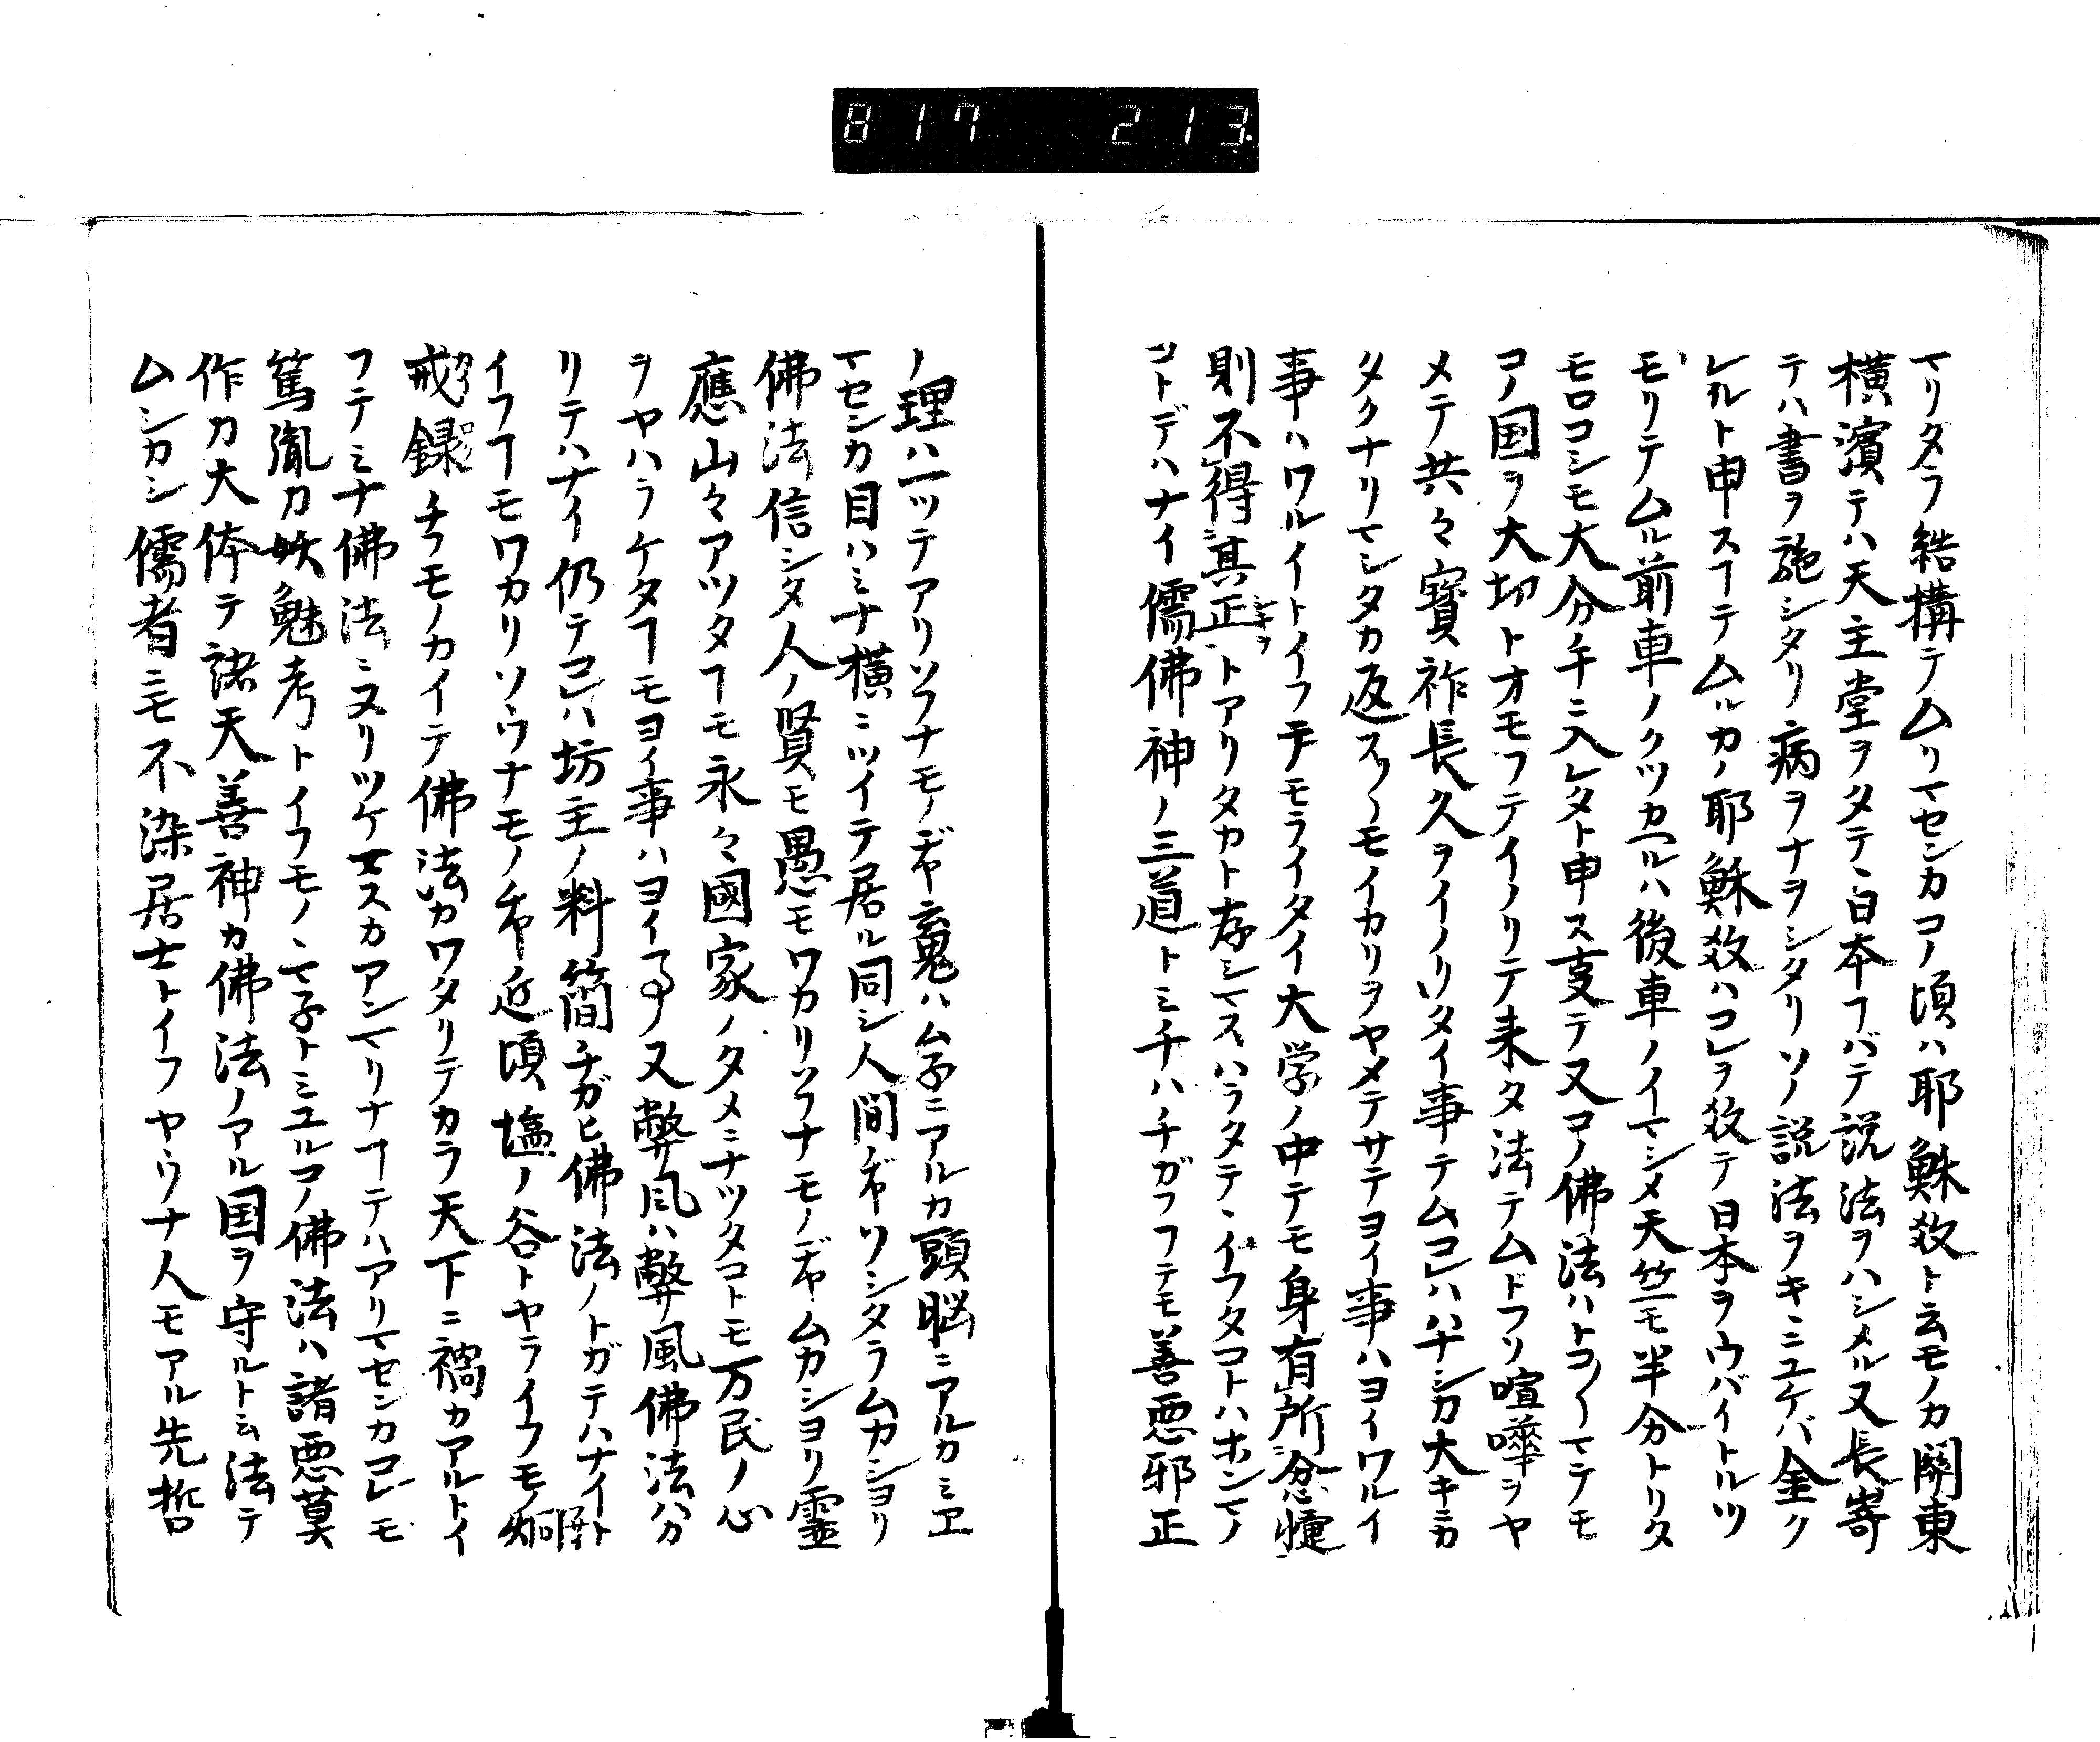 817 213
マリタラ結構テムリマセンカコノ頃ハ耶穌教ト云モノカ關東
横濱テハ天主堂ヲタテヽ日本コトバテ説法ヲハシメル又長嵜
テハ書ヲ施シタリ病ヲナヲシタリソノ説法ヲキニユケバ金ク
レルト申スコテムルカノ耶穌教ハコレヲ教テ日本ヲウバイトルツ
モリテムル前車ノクツカヘルハ後車ノイマシメ天竺モ半分トリタ
モロコシモ大分手ニ入レタト申ス支テ又コノ佛法ハトコ〱マテモ
コノ国ヲ大切トオモフテイノリテ来タ法テムドフソ喧嘩ヲヤ
メテ共々寳祚長久ヲイノリタイ事テムコレハハナシカ大キニカ
タクナリマシタカ返ス〱モイカリヲヤメテサテヨイ事ハヨイワルイ
事ハワルイトイフテモライタイ大学ノ中テモ身有所忿懥
則不得其正トアリタカト存シマスハラタテヽイフタコトハホンマノ
コトデハナイ儒佛神ノ三道トミチハチガフテモ善悪邪正
ノ理ハ一ツテアリソフナモノヂヤ玄鬼ハム子ニアルカ頭脳ニアルカミヱ
マセンカ目ハミナ横ニツイテ居ル同シ人間ヂヤソシタラムカシヨリ
佛法信シタ人ノ賢モ愚モワカリソフナモノヂヤムカシヨリ靈
應山々アツタコモ永々國家ノタメニナツタコトモ万民ノ心
ヲヤハラケタコモヨイ事ハヨイ事又弊風ハ弊風佛法ハカ
リテハナイ仍テコレハ坊主ノ料簡チガヒ佛法ノトガテハナイト
イフコモワカリソウナモノヂヤ近頃塩ノ谷トヤライフモノ炯
戒録チフモノカイテ佛法カワタリテカラ天下ニ禍カアルトイ
フテミナ佛法ニヌリツケマスカアンマリナコテハアリマセンカコレモ
篤胤カ妖魅考トイフモノヽマ子トミユルコノ佛法ハ諸悪莫
作カ大体テ諸天善神カ佛法ノアル国ヲ守ルト云法テ
ムシカシ儒者ニモ不染居士トイフヤウナ人モアル先哲